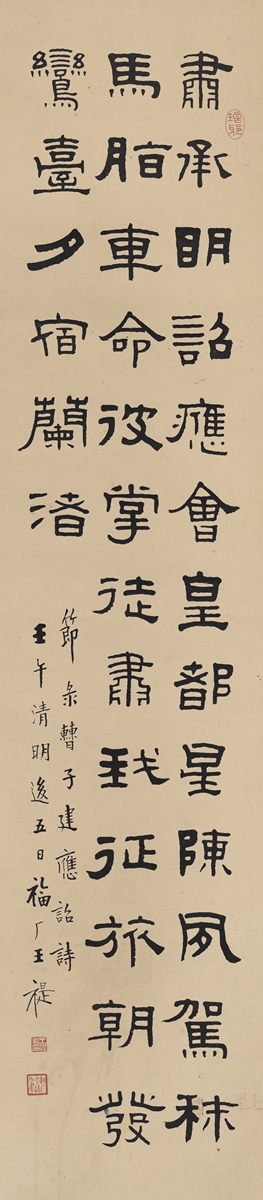 肅承明詔應會皇都星陳夙駕秣
馬脂車命彼掌徒肅我征旅朝發
鸞臺夕宿蘭渚
節彔曹子建應詔詩
壬午清明後五日福厂王禔